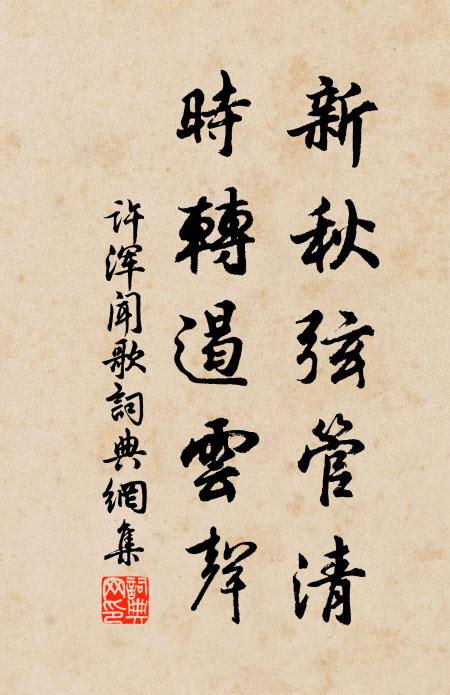 新秋弦管清
時轉遏雲聲
许渾闻歌詞典網集
詞典